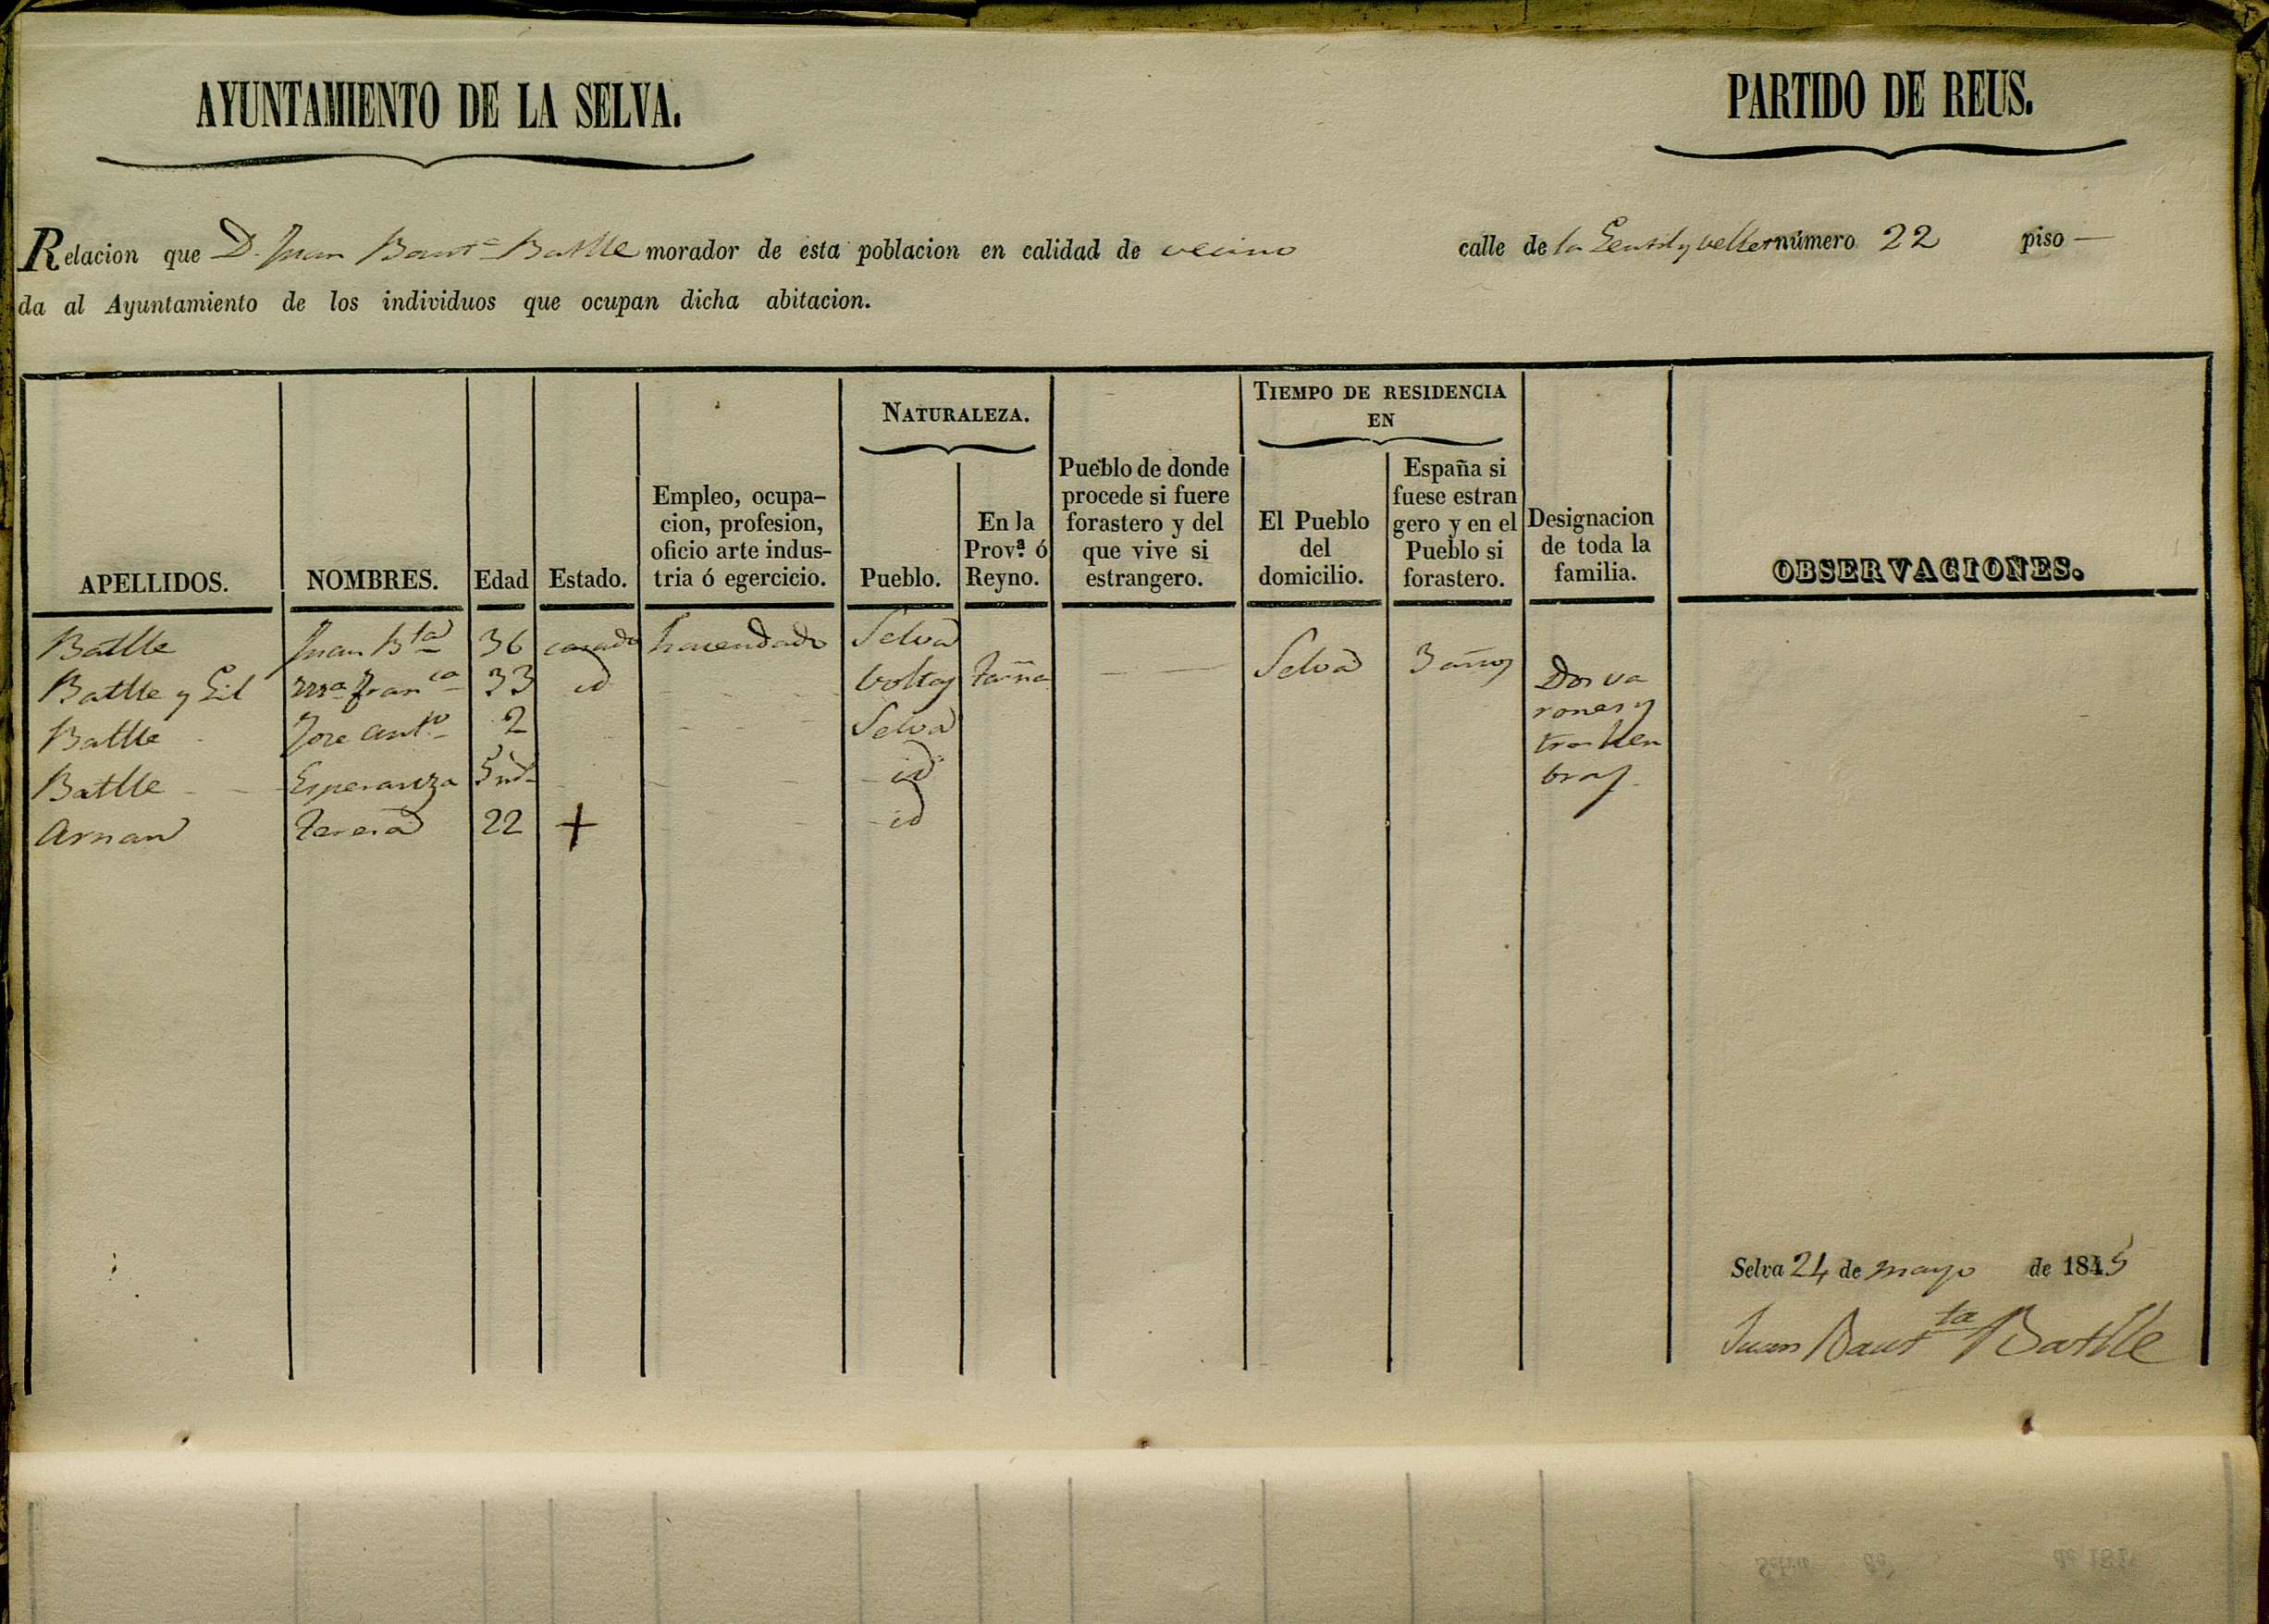 AYUNTAMIENTO DE LA SELVA.
PARTIDO DE REUS.
Relacion que D. Juan Baut.ª Batlle morador de esta poblacion en calidad de vecino calle de la número 22 piso —
da al Ayuntamiento de los individuos que ocupan dicha abitacion.
NATURALEZA.
TIEMPO DE RESIDENCIA
EN
APELLIDOS.
NOMBRES.
Edad
Estado.
Empleo, ocupa-
cion, profesion,
oficio arte indus-
tria ó egercicio.
Pueblo.
En la
Prov.ª ó
Reyno.
Pueblo de donde
procede si fuere
forastero y del
que vive si
estrangero.
El Pueblo
del
domicilio.
España si
fuese estran
gero y en el
Pueblo si
forastero.
Designacion
de toda la
familia.
OBSERVACIONES.
Batlle Juan Bta 36 casado hacendado Selva
Batlle y Gil Mª Franca 33 id Voltas Tarña — — Selva 3 años
Batlle José Anto 2 Selva
Batlle - - Esperanza id
Arnau Teresa 22 + id
Dos va
rones y
tres hem
bras.
Selva 24 de mayo de 1845
Juan Bautta Batlle